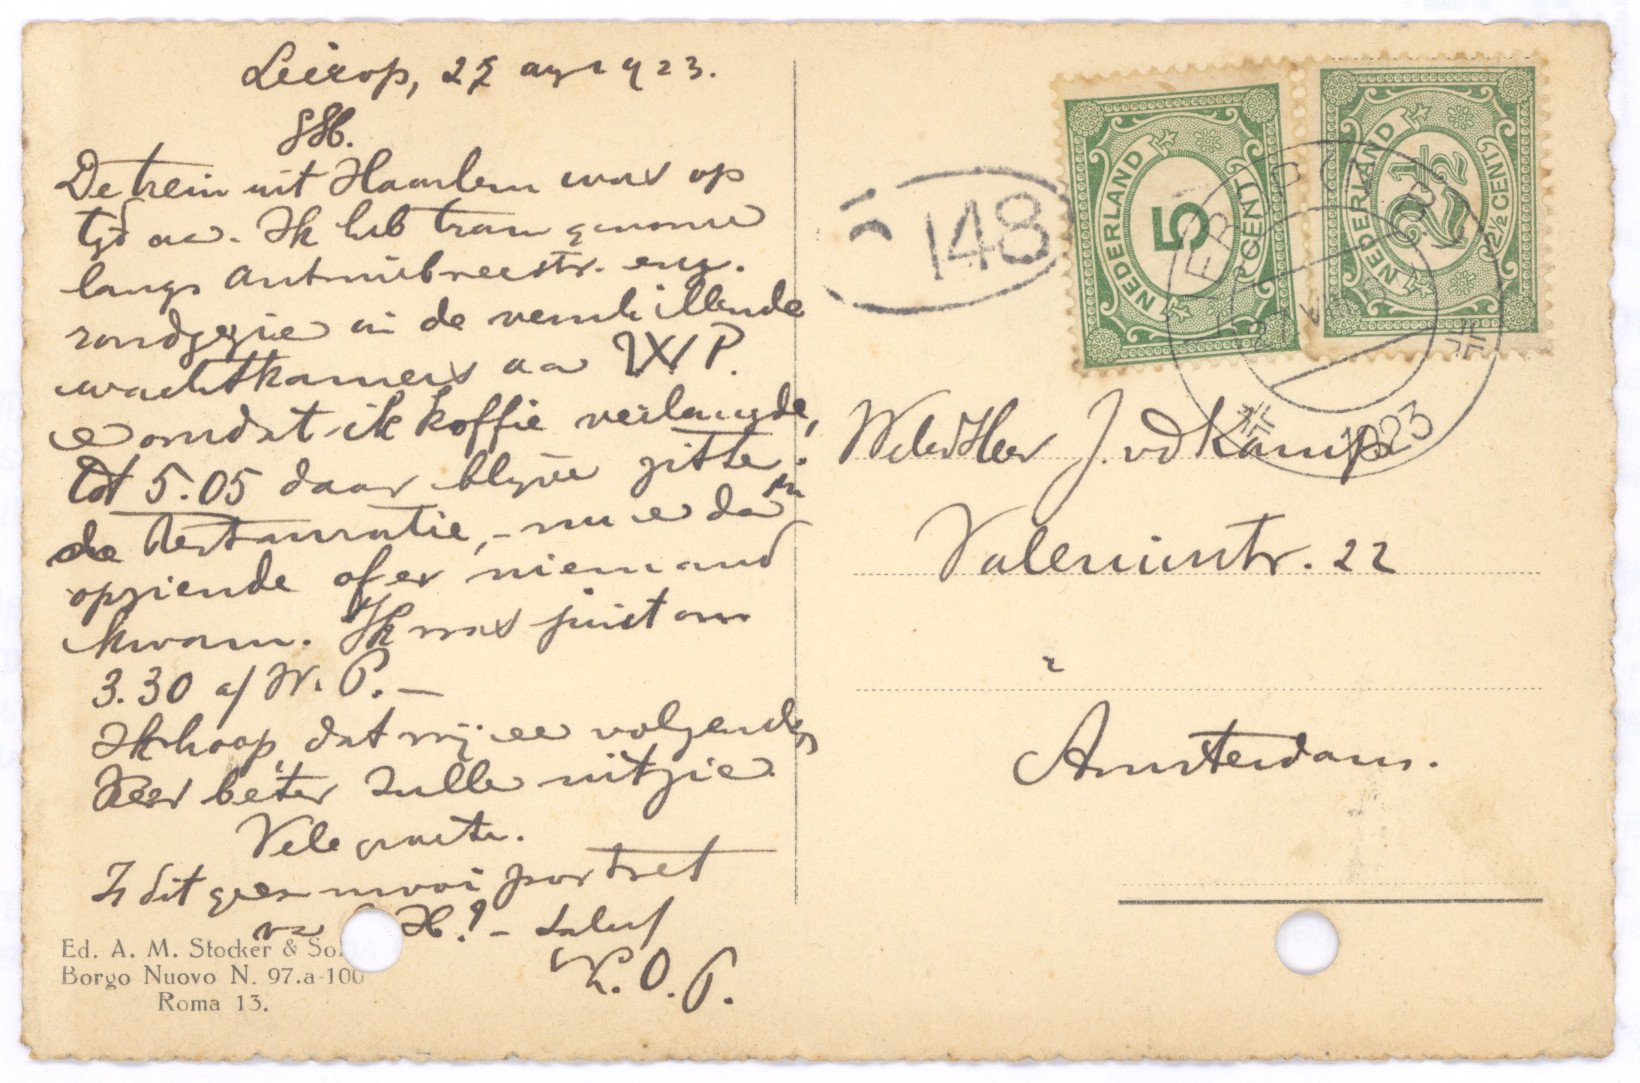 Lierop, 27 aug 1923.
De trein uit Haarlem was op
tyd aa. Ik heb tram genome
langs Antoniebreestr. enz.
rondgezie in de verschillende
wachtkamers aa W P.
e omdat ik koffie verlangde,
tot 5.05 daar blyve zitte in
de Restauratie, - nu e da
opziende of er niemand
kwam. Ik was juist om
3.30 a/ W. P. -
Ik hoop, dat wij ee volgende
Keer beter zulle uitzie.
Vele groete.
Is dit geen mooi portret
va H.? -
K. O. P.
Ed. A. M. Stocker &
Borgo Nuovo N. 97.a-100
Roma 13.
148
NEDERLAND
5
CENT
NEDERLAND
2½
2½ CENT
1923
WelEdHeer J. vd Kamp
Valeriusstr. 22
Amsterdam.